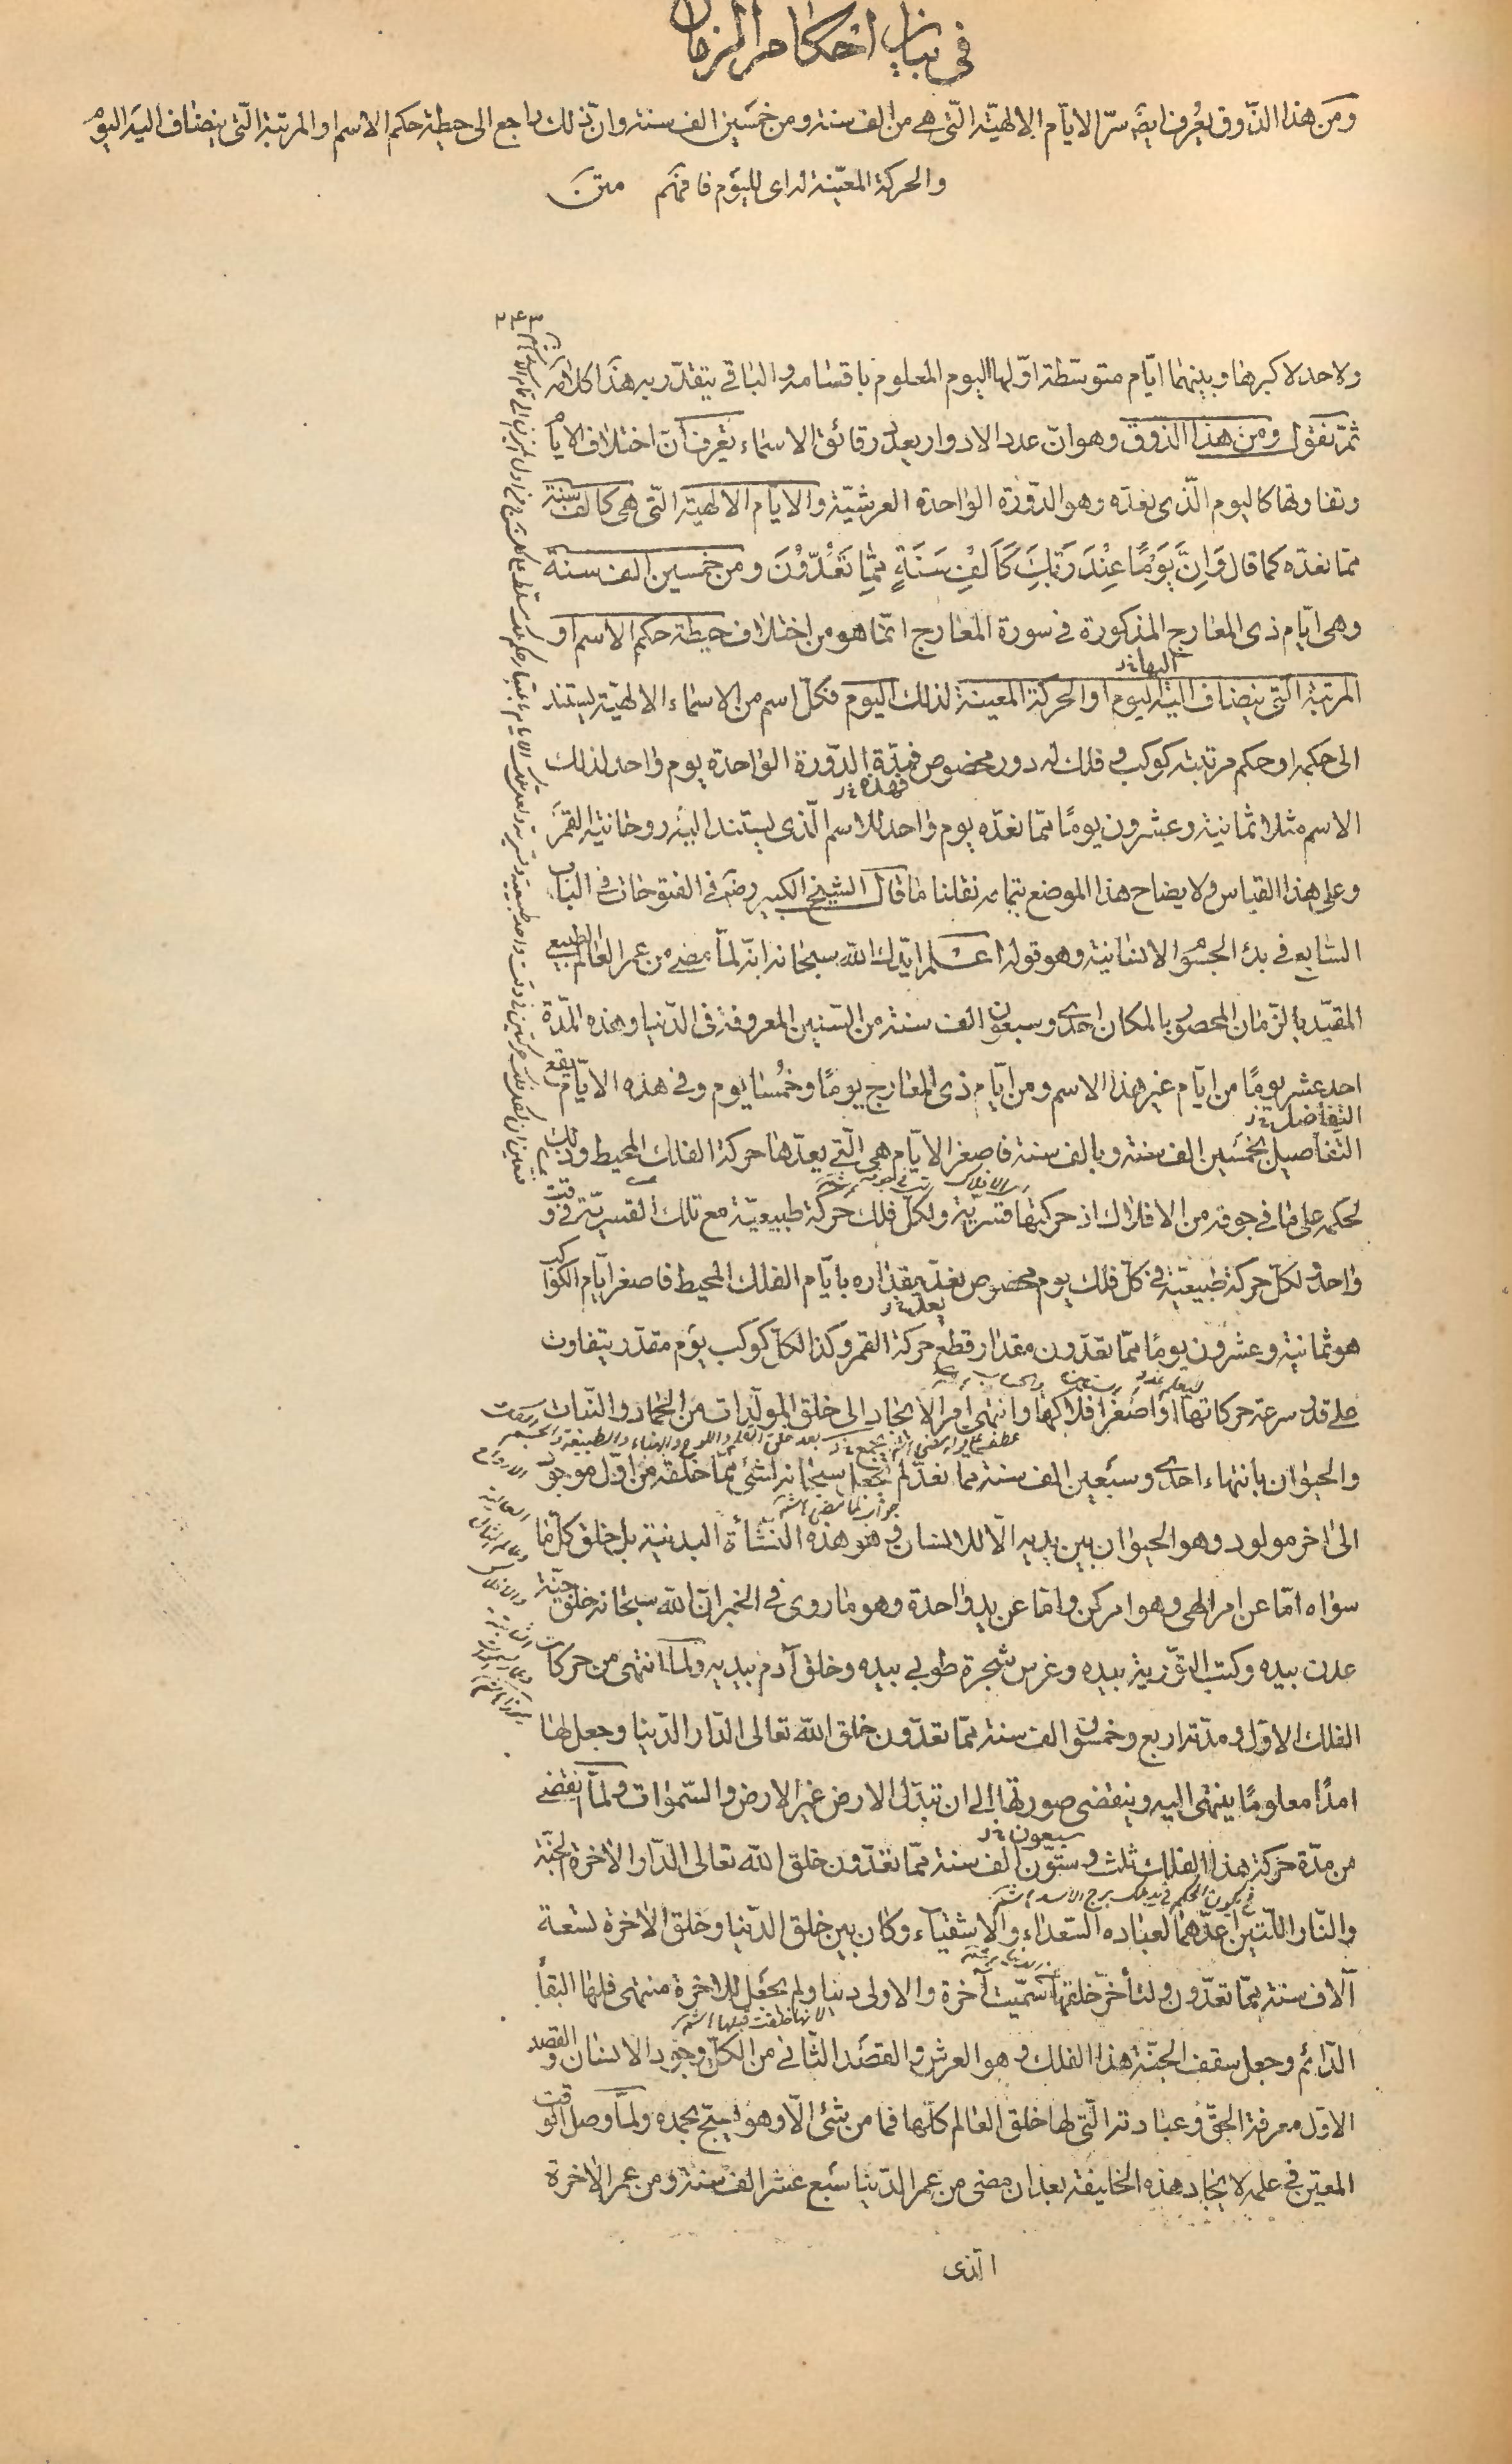 في بيان احكام الزمان
ومن هذا الذوق يعرف ايضا سرّ الايام الالهيّة التّى هى من الف سنة ومن خمسين الف سنة وانّ ذلك راجع الى حيطة حكم الاسم او المرتبة التّى ينضاف اليه اليوم
والحركة المعيّنة له اى لليوم فافهم متن
٢٤٣
ولا حد لاكبرها وبينهما ايّام متوسّطة اوّلها اليوم المعلوم باقسامه والباقى يتقدّر به هذا كلامه
ثمّ نقول ومن هذا الذوق وهو انّ عدد الادوار بعدد رقائق الاسماء يعرف انّ اختلاف الايام
وتفاوتها كاليوم الّذى نعدّه وهو الدّورة الواحدة العرشيّة والايام الالهيّة التّى هى كالف سنة
ممّا نعدّه كما قال وَاِنَّ يَوْمًا عِنْدَ رَبِّكَ كَاَلْفِ سَنَةٍ مِمَّا تَعُدّوُنَ ومن خمسين الف سنة
وهى ايّام ذى المعارج المذكورة فى سورة المعارج انّما هو من اختلاف حيطة حكم الاسم او
اليها خ‍ ر
المرتبة التّى ينضاف اليه اليوم او الحركة المعينة لذلك اليوم فكلّ اسم من الاسماء الالهيّة يستند
الى حكمه او حكم مرتبته كوكب فى فلك له دور مخصوص فمدّة الدّورة الواحدة يوم واحد لذلك
فهذه خ‍ ر
الاسم مثلا ثمانية وعشرون يومًا ممّا نعدّه يوم واحد للاسم الّذى يستند اليه روحانية القمر
وعلى هذا القياس ولايضاح هذا الموضع بتمامه نقلنا ما قال الشيخ الكبير رضه فى الفتوحات فى الباب
السّابع فى بدء الجسوم الانسانية وهو قوله اعلم ايّدك الله سبحانه انّه لمّا مضى من عمر العالم الطبيعى
المقيّد بالزمان المحصور بالمكان احدى وسبعون الف سنة من السّنين المعروفة فى الدّنيا وهذه المدّة
احد عشر يومًا من ايّام غير هذا الاسم ومن ايّام ذى المعارج يومًا وخمُسا يوم وفى هذه الايّام يقع
التّفاضل خ‍ ر
التّفاصيل بخمسين الف سنة وبالف سنة فاصغر الايّام هى الّتى يعدّها حركة الفلك المحيط وذلك
لحكمه على ما فى جوفه من الافلاك اذ حركتها قسريّة ولكلّ فلك حركة طبيعيّة مع تلك القسريّة فى وقت
واحد ولكلّ حركة طبيعيّة فى كلّ فلك يوم مخصوص يعدّ مقداره بايّام الفلك المحيط فاصغر ايّام الكواكب
يعد خ‍ ر
هو ثمانية وعشرون يومًا ممّا تعدّون مقدار قطع حركة القمر وكذا لكلّ كوكب يوم مقدّر يتفاوت
على قدر سرعة حركاتها او اصغر افلاكها وانتهى امر الايجاد الى خلق المولّدات من الجماد والنّبات
والحيوان بانتهاء احدى وسبعين الف سنة ممّا نعدّ لم يجعل سبحانه لشئ ممّا خلقه من اوّل موجود
جواب لما مضى
الى اخر مولود وهو الحيوان بين يديه الّا للانسان وهو هذه النّشأة البدنية بل خلق كلّ ما
سواه امّا عن امر الهى وهو امر كن وامّا عن يد واحدة وهو ما روى فى الخبر انّ الله سبحانه خلق جنّة
عدن بيده وكتب التّوراية بيده وغرس شجرة طوبى بيده وخلق آدم بيديه ولمّا انتهى من حركات
الفلك الاوّل ومدّته اربع وخمسون الف سنة ممّا تعدّون خلق الله تعالى الدّار الدّنيا وجعل لها
امدًا معلومًا ينتهى اليه وينقضى صورتها الى ان تبدّل الارض غير الارض والسّموات ولمّا انقضى
سبعون خ‍ ر
من مدّة حركة هذا الفلك ثلث وستّون الف سنة ممّا تعدّون خلق الله تعالى الدّار الاخرة الجنّة
والنّار اللّتين اعدّهما لعباده السّعداء والاشقياء وكان بين خلق الدّنيا وخلق الاخرة تسعة
آلاف سنة ممّا تعدّون ولتأخّر خلقها سمّيت آخرة والاولى دنيا ولم يجعل للاخرة منتهى فلها البقاء
لانها خلقت قبلها
الدّائم وجعل سقف الجنّة هذا الفلك وهو العرش والقصد الثّانى من الكلّ وجود الانسان والقصد
الاوّل معرفة الحقّ وعبادته الّتى لها خلق العالم كلّها فما من شئ الّا وهو يسبّح بحمده ولمّا وصل الوقت
المعيّن فى علمه لايجاد هذه الخليفة بعد ان مضى من عمر الدّنيا سبع عشر الف سنة ومن عمر الاخرة
الّذى